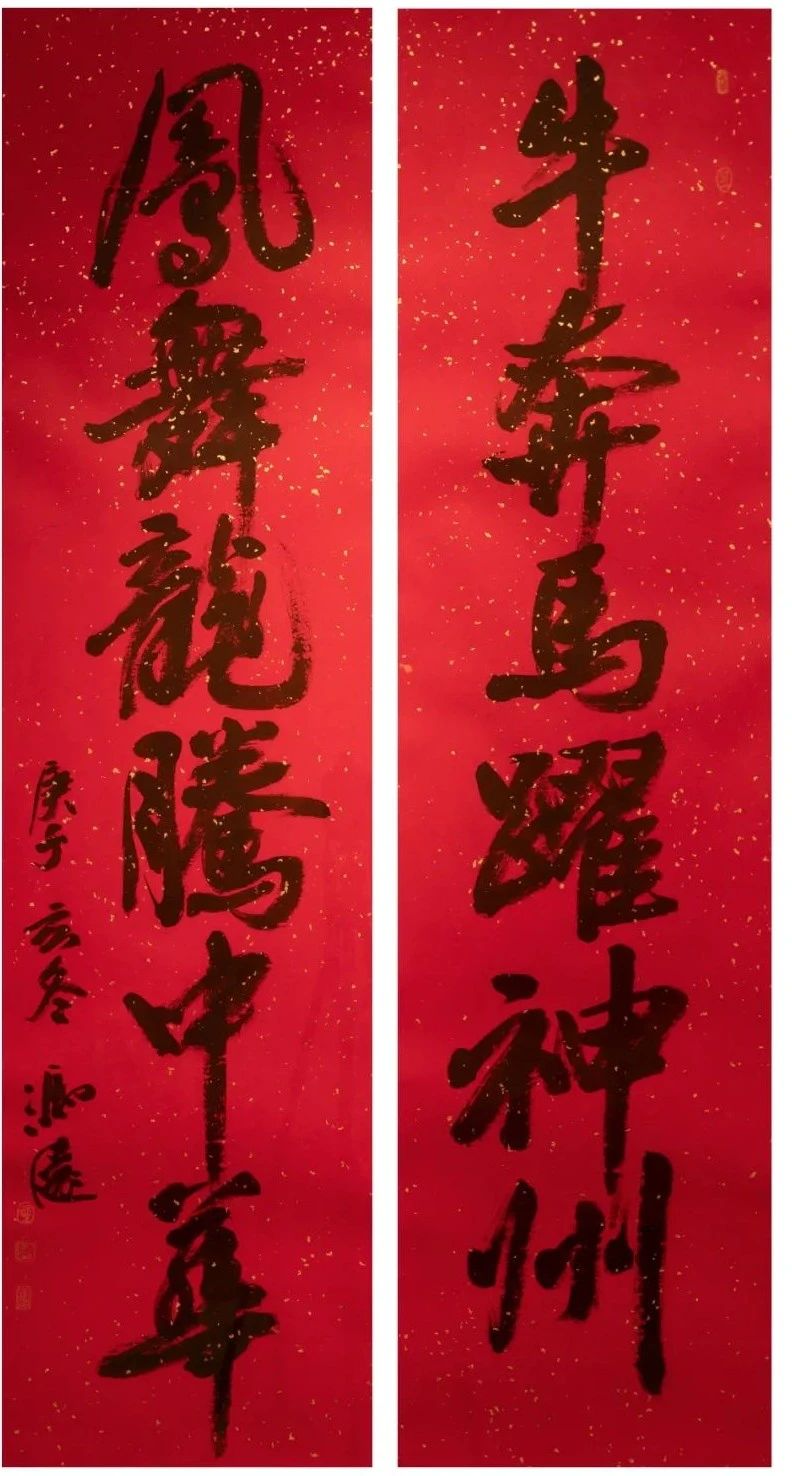 牛奔馬躍神州
鳳舞龍騰中華
庚子